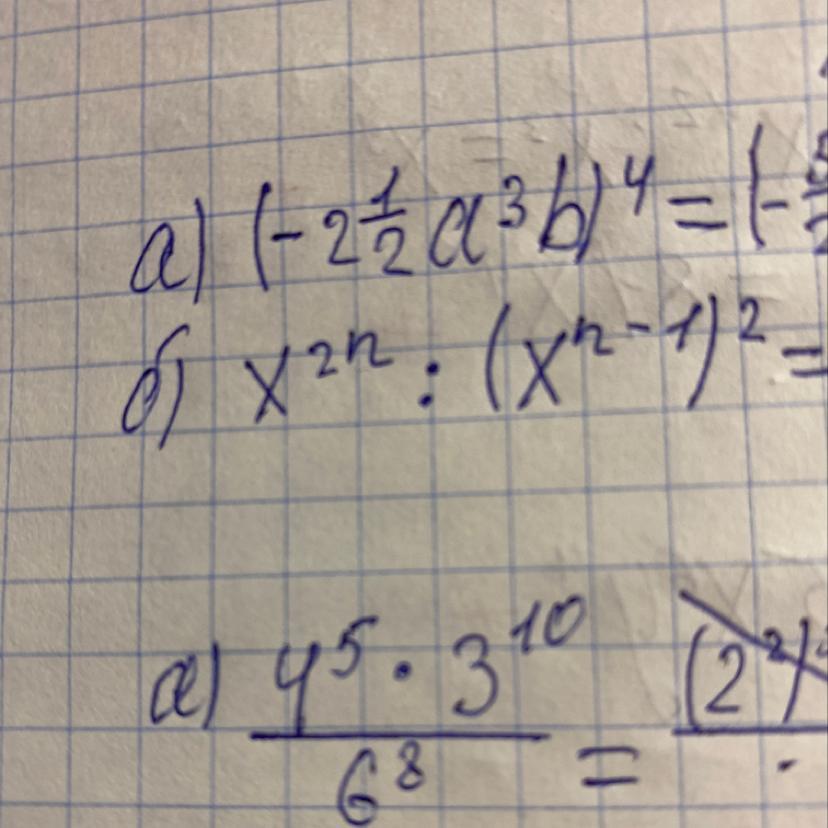 а) (-2 1/2 a³b)⁴ = (- 5/2
б) x²ⁿ : (xⁿ⁻¹)² =
а) 4⁵ · 3¹⁰ / 6⁸ = (2²)